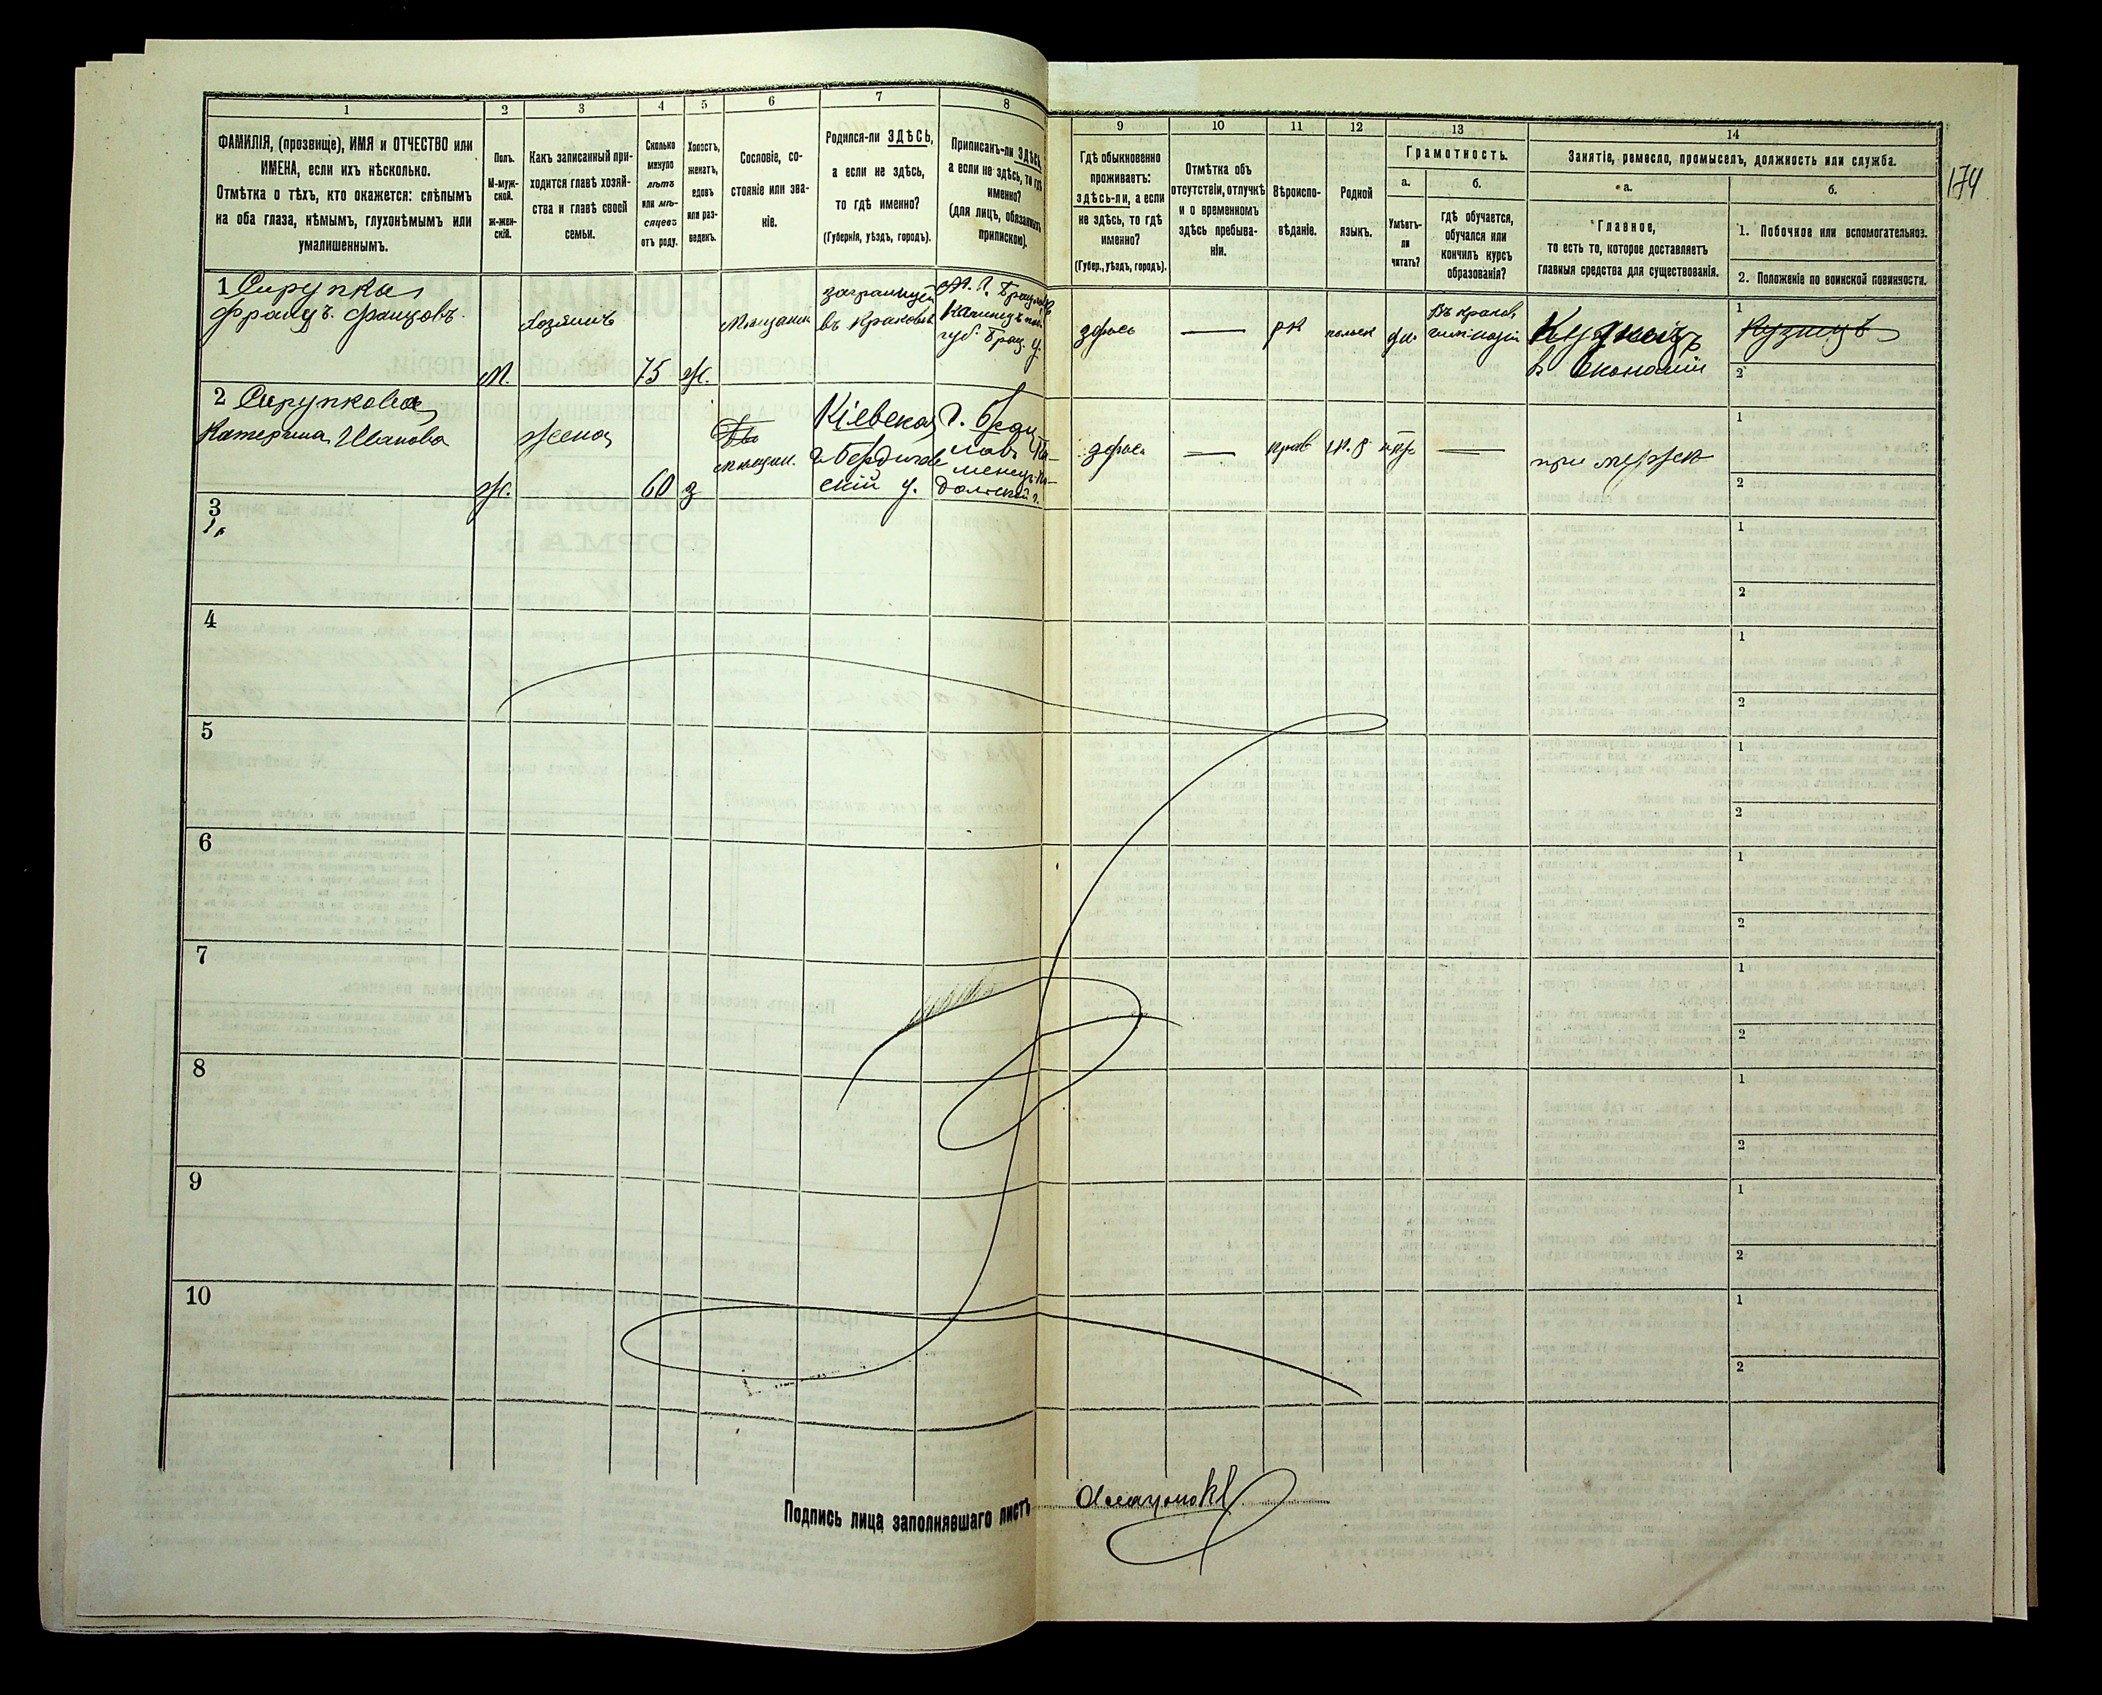 1
2
3
4
5
6
7
8
ФАМИЛІЯ, (прозвище), ИМЯ и ОТЧЕСТВО или
ИМЕНА, если ихъ нѣсколько.
Отмѣтка о тѣхъ, кто окажется: слѣпымъ
на оба глаза, нѣмымъ, глухонѣмымъ или
умалишеннымъ.
Полъ.
М-муж-
ской.
ж-жен-
скій.
Какъ записанный при-
ходится главѣ хозяй-
ства и главѣ своей
семьи.
Сколько
минуло
лѣтъ
или мѣ-
сяцевъ
отъ роду.
Холостъ,
женатъ,
вдовъ
или раз-
веденъ.
Сословіе, со-
стояніе или зва-
ніе.
Родился-ли ЗДѢСЬ,
а если не здѣсь,
то гдѣ именно?
(Губернія, уѣздъ, городъ).
Приписанъ-ли ЗДѢСЬ,
а если не здѣсь, то гдѣ
именно?
(для лицъ, обязанныхъ
припискою).
9
10
11
12
13
14
Гдѣ обыкновенно
проживаетъ:
здѣсь-ли, а если
не здѣсь, то гдѣ
именно?
(Губер., уѣздъ, городъ).
Отмѣтка объ
отсутствіи, отлучкѣ
и о временномъ
здѣсь пребыва-
ніи.
Вѣроиспо-
вѣданіе.
Родной
языкъ.
Грамотность.
а.
Умѣетъ-
ли
читать?
б.
гдѣ обучается,
обучался или
кончилъ курсъ
образованія?
Занятіе, ремесло, промыселъ, должность или служба.
а.
Главное,
то есть то, которое доставляетъ
главныя средства для существованія.
б.
1. Побочное или вспомогательное.
2. Положеніе по воинской повинности.
174
1
Францъ Францовъ
М.
Хозяинъ
75
Ж.
Мѣщанинъ
заграницей
въ Краковѣ
здѣсь
—
РК
польск
да
Кузнецъ
въ Экономіи
1
Кузнецъ
2
2
Катерина Иванова
Ж.
жена
60
з
мѣщан.
Кіевская
г. Бердичев
скій у.
здѣсь
—
прав
—
при мужѣ
1
2
3
1
2
4
1
2
5
1
2
6
1
2
7
1
2
8
1
2
9
1
2
10
1
2
Подпись лица заполнявшаго листъ